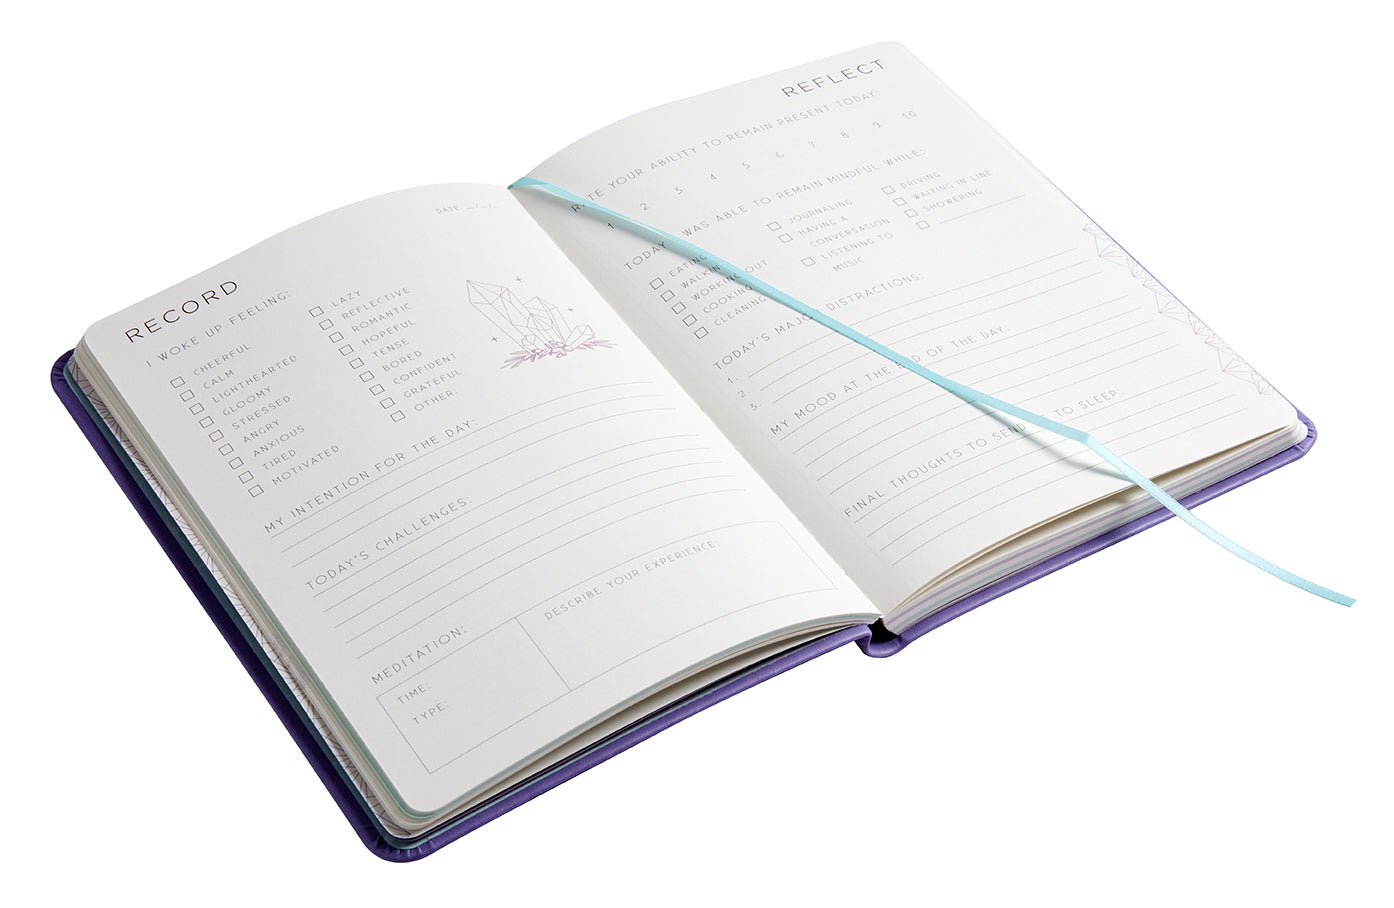 DATE __/__/__
RECORD
I WOKE UP FEELING:
CHEERFUL
CALM
LIGHTHEARTED
GLOOMY
STRESSED
ANGRY
ANXIOUS
TIRED
MOTIVATED
LAZY
REFLECTIVE
ROMANTIC
HOPEFUL
TENSE
BORED
CONFIDENT
GRATEFUL
OTHER:
MY INTENTION FOR THE DAY:
TODAY'S CHALLENGES:
MEDITATION:
TIME:
TYPE:
DESCRIBE YOUR EXPERIENCE:
REFLECT
RATE YOUR ABILITY TO REMAIN PRESENT TODAY:
1 2 3 4 5 6 7 8 9 10
TODAY WAS ABLE TO REMAIN MINDFUL WHILE:
EATING
WALKING
WORKING OUT
COOKING
CLEANING
JOURNALING
HAVING A
CONVERSATION
LISTENING TO
MUSIC
DRIVING
WAITING IN LINE
SHOWERING
TODAY'S MAJOR DISTRACTIONS:
1.
2.
3.
MY MOOD AT THE END OF THE DAY:
FINAL THOUGHTS TO SEND TO SLEEP: